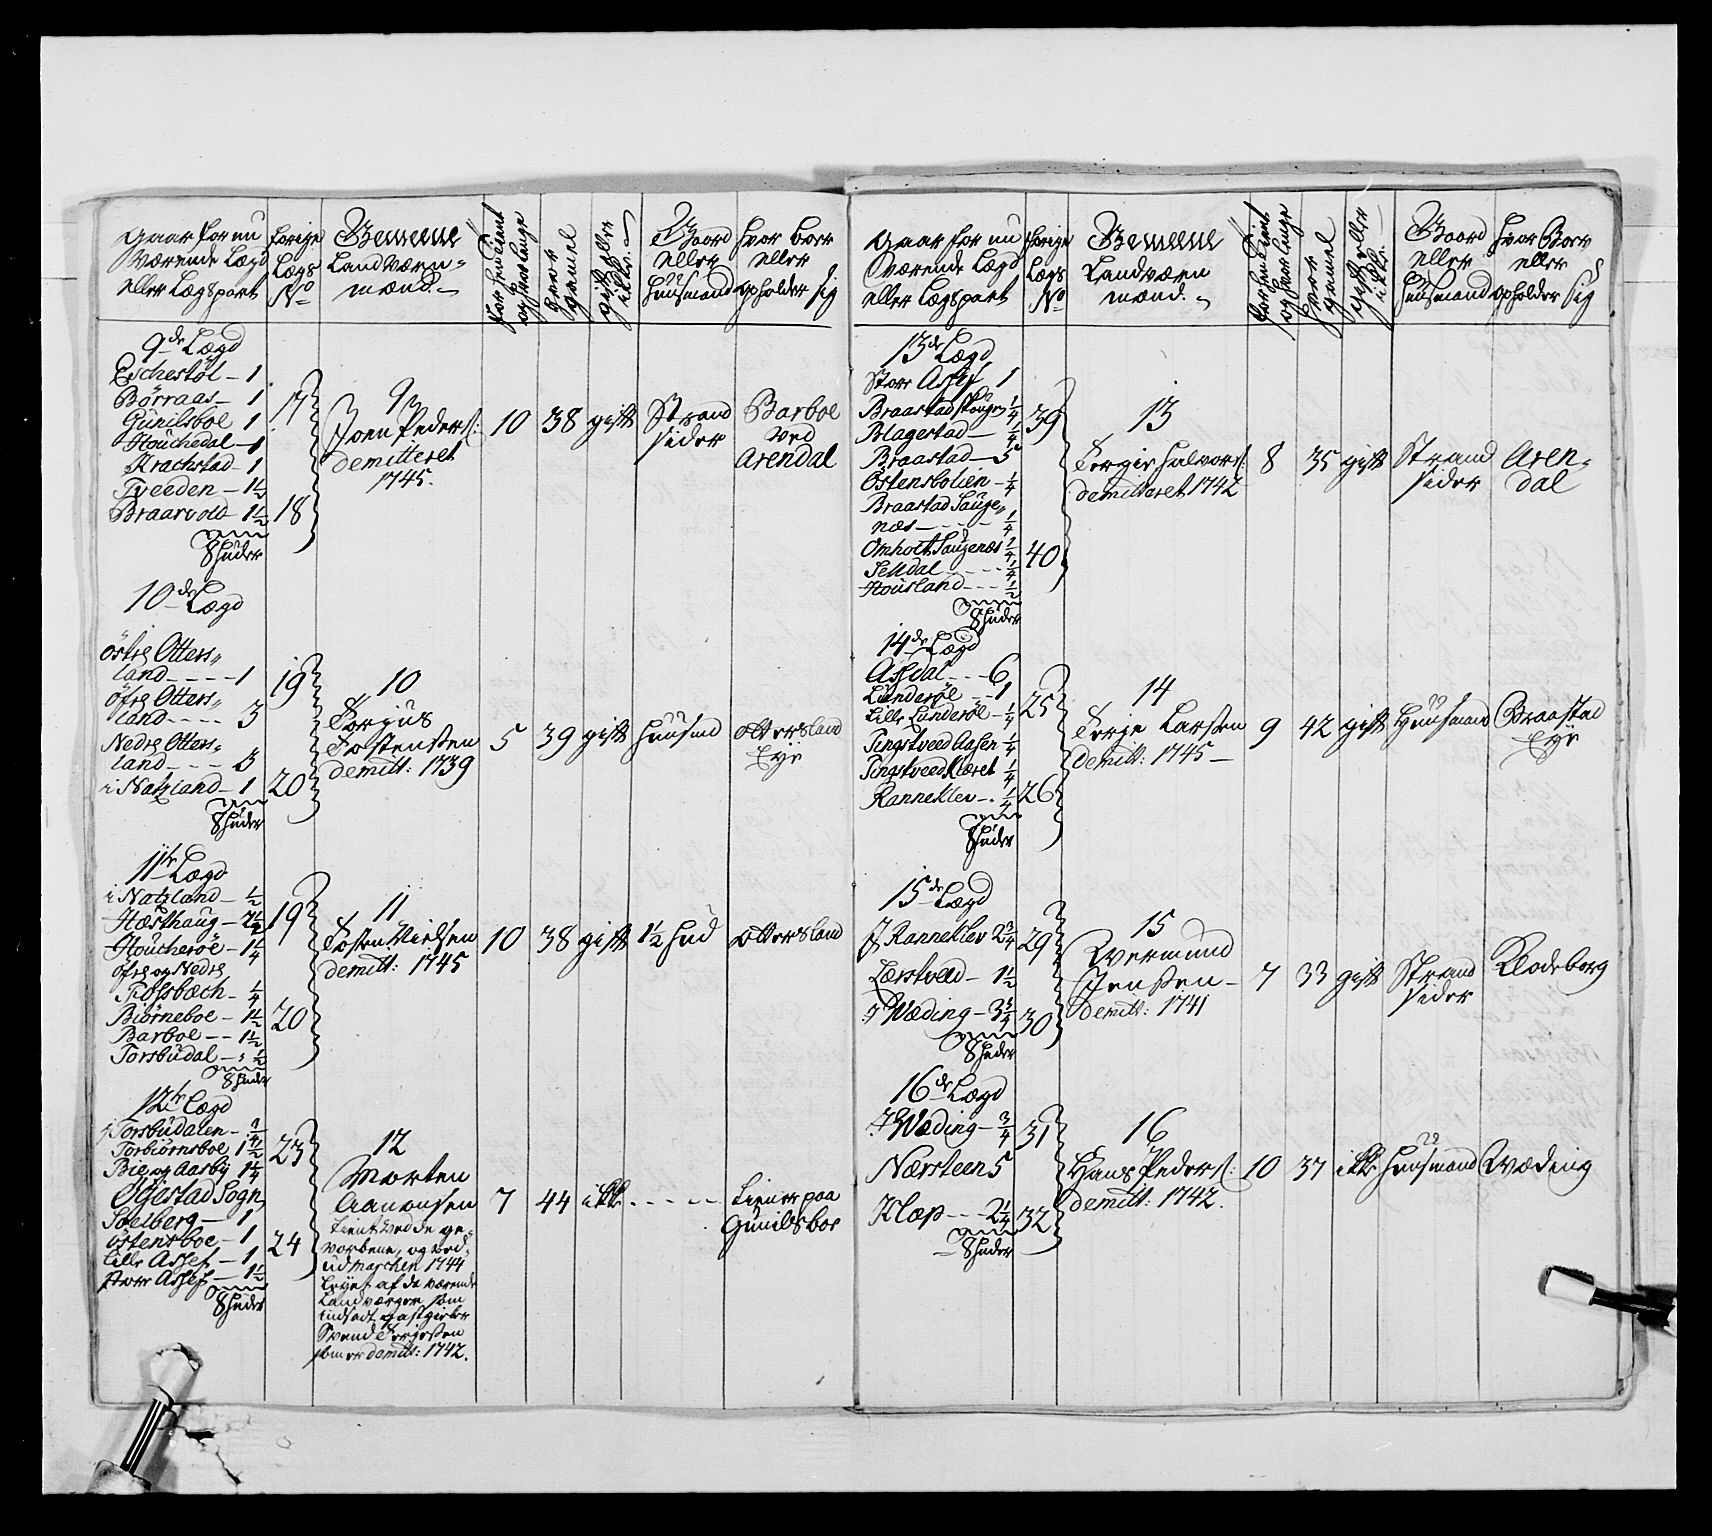 Gaar for nu
værende Lægd
eller Lægspart
forige
Lægs
No
Gemeene
Landværn-
mænd.
for hen tient
og hvor længe
hvor
gamel
gift eller
ikke
Gaard
eller
Huusmand
hvor boer
eller
opholder sig
9de Lægd
Eschestøl - 1
Børraas - 1
Gunilsboe 1
Houchedal - 1
Krachstad - 1
Tveeden - 1½
Braarvold - 1½
8 huder
17
18
9
Joen Peders:
demitteret
1745.
10
38
gift
Strand
sider
Barboe
ved
Arendal
10de Lægd
østre Otters-
land - 1
øfre Otters-
land - 3
Nedre Otters-
land - 3
i Natzland - 1
8 huder
19
20
10
Torjus
Tostensen
demitt: 1739
5
39
gift
huusmd
ottersland
Eye
11te Lægd
i Natzland - ½
Hæsthaug - 2½
Houcherøe - 1¼
øfre og Nedre
Fiøssbæch - ¼
Biørneboe - 1½
Barboe - 1½
Torsbudal - ½
8 huder
19
20
11
Tosten Nielsen
demitt: 1745
10
38
gift
1½ hud
ottersland
12te Lægd
i Torsbudalen - ¾
Torbiørnsboe 1½
Bie og Aasby 1¼
Øyestad Sogn
Solberg - 1
østensboe - 1
Lille Assef - 1
store Assef - 1½
8 huder
23
24
12
Morten
Aanonsen
tient ved de ge-
vorbene, og ved
udmarchen 1744
leyet af da værende
Landværgen som
indsadt gastgieber
Svend Terjesen
som er demitt: 1742.
7
44
ikke
tiener paa
Gunilsboe
Gaar for nu
værende Lægd
eller Lægspart
forige
Lægs
No
Gemeene
Landværn
mænd.
for hen tient
og hvor længe
hvor
gamel
gift eller
ikke
Gaard
eller
Huusmand
hvor Boer
eller
opholder sig
13de Lægd
Store Assef 1
Braastad skougen ¼
Blagestad - ¼
Braastad - 5
Østensbolien - ¼
Braastad Sauge-
næs - ¼
Omholt Saugenæs ¼
Selldal - ¼
Housland - ½
8 huder
39
40
13
Torgier halvors:
demitteret 1742
8
35
gift
Strand
sider
Aren-
dal
14de Lægd
Assdal - 6
Lunderøe - 1
Lille Lunderøe - ¼
Tingstveed Aasen ¼
Tingstveed Kiæret ¼
Ranneklev - ¼
8 huder
25
26
14
Terje Larsen
demitt: 1745
9
42
gift
Huusmand
Braastad
Eye
15de Lægd
J Ranneklev 2¾
Lærstveed - 1½
J Wæding - 3¾
8 huder
29
30
15
Wermund
Jensen
demitt: 1741
7
33
gift
Strand
sider
Klodeborg
16de Lægd
J Wæding - ¾
Næsteen 5
Klæp - 2¼
8 huder
31
32
16
Hans Peders:
demitt: 1742.
10
37
ikke
huusmand
Wæding